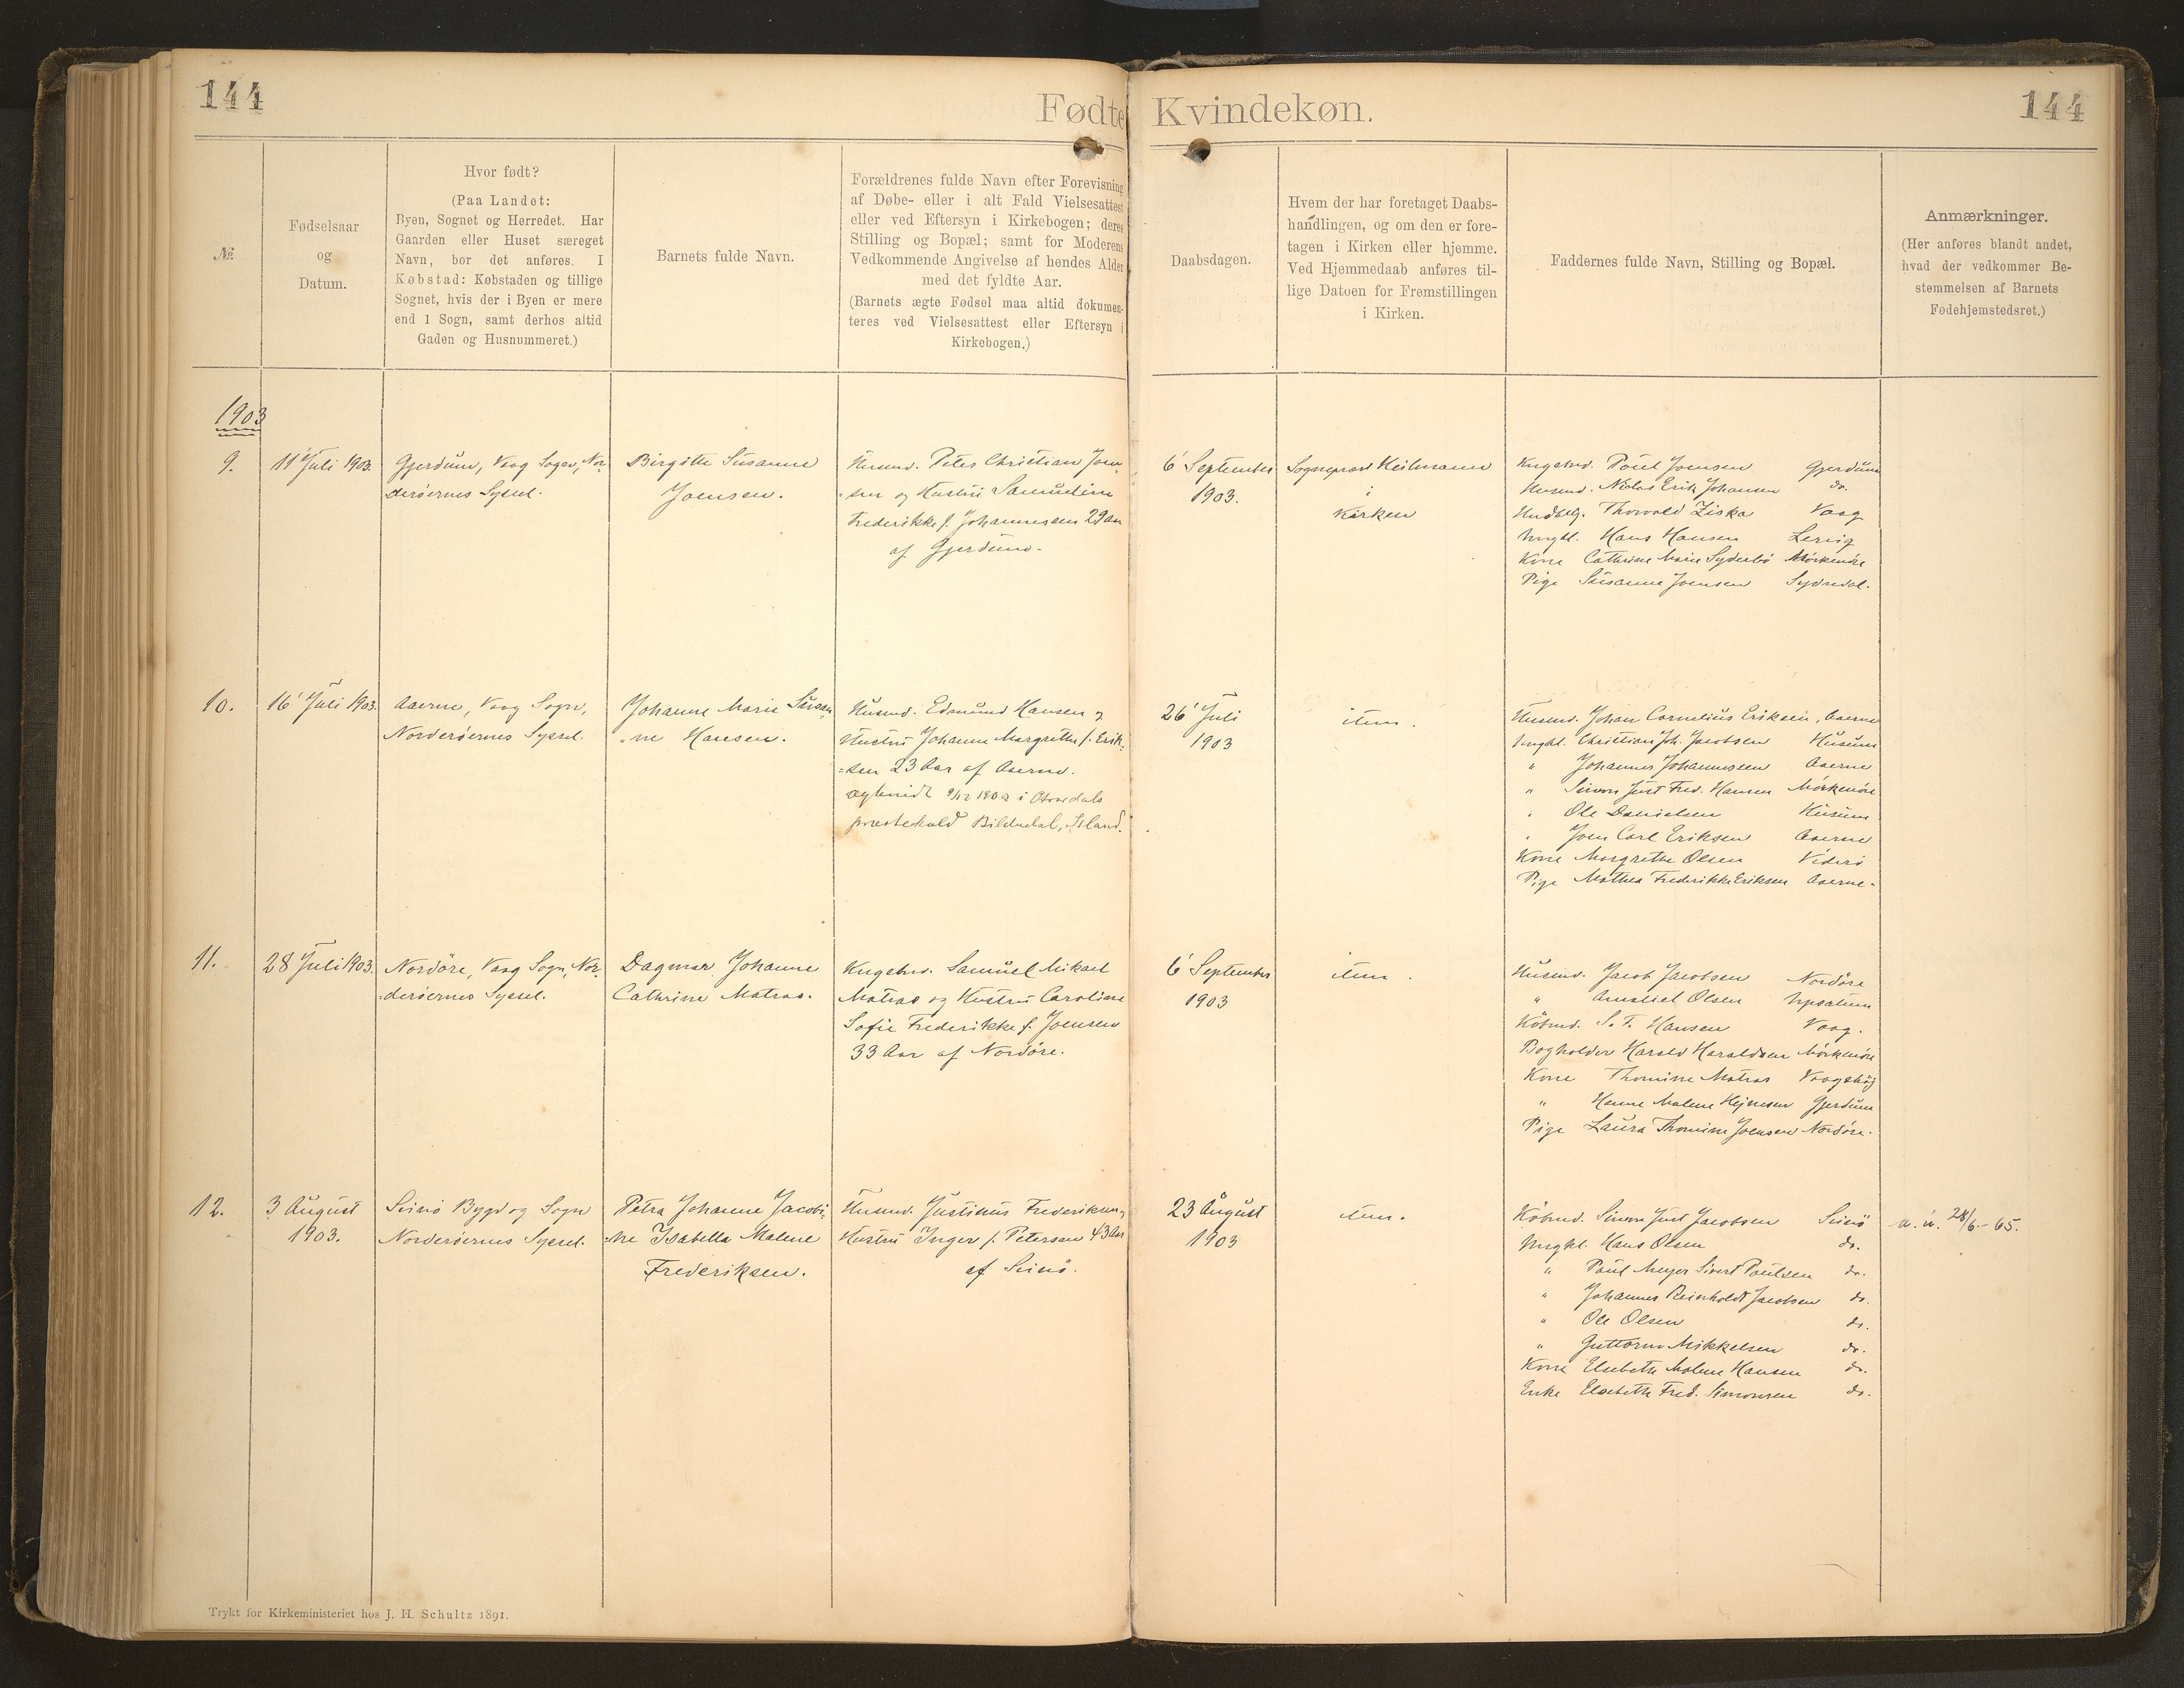 144
Fødte
Kvindekøn.
144
№
Fødselsaar
og
Datum.
Hvor født?
(Paa Landet:
Byen, Sognet og Herredet. Har
Gaarden eller Huset særeget
Navn, bor det anføres. I
Købstad: Købstaden og tillige
Sognet, hvis der i Byen er mere
end 1 Sogn, samt derhos altid
Gaden og Husnummeret.)
Barnets fulde Navn.
Forældrenes fulde Navn efter Forevisning
af Døbe- eller i alt Fald Vielsesattest
eller ved Eftersyn i Kirkebogen; deres
Stilling og Bopæl; samt for Moderens
Vedkommende Angivelse af hendes Alder
med det fyldte Aar.
(Barnets ægte Fødsel maa altid dokumen-
teres ved Vielsesattest eller Eftersyn i
Kirkebogen.)
Daabsdagen.
Hvem der har foretaget Daabs-
handlingen, og om den er fore-
tagen i Kirken eller hjemme.
Ved Hjemmedaab anføres til-
lige Datoen for Fremstillingen
i Kirken.
Faddernes fulde Navn, Stilling og Bopæl.
Anmærkninger.
(Her anføres blandt andet,
hvad der vedkommer Be-
stemmelsen af Barnets
Fødehjemstedsret.)
1903
9.
11 Juli 1903.
Gjerdum, Vaag Sogn, Nor-
derøernes Syssel.
Birgitte Susanne
Joensen.
Husmd. Peter Christian Joen-
sen og Hustru Samueline
Frederikke f. Johannesen 29 Aar
af Gjerdum.
6' September
1903.
Sogneprest Heilmann
i
Kirken
Kngsbmd. Poul Joensen Gjerdum
Husmd. Niclas Erik Johansen do.
Thorvald Ziska Vaag
Ungkl. Hans Hansen Lervig
Kone Cathrine Marie Syderbø Mörkenöre
Pige Susanne Joensen Sydredal.
10.
16' Juli 1903.
Aaerne, Vaag Sogn,
Norderøernes Syssel.
Johanne Marie Susan-
ne Hansen.
Husmd. Edmund Hansen og
Hustru Johanne Margrethe f. Erik-
sen 23 Aar af Aaerne.
9/12 1902 i
Bildudal, Island.
26' Juli
1903
item.
Husmd. Johan Cornelius Eriksen, Aaerne
Ungkl. Christian Joh. Jacobsen Husum
" Johannes Johannessen Aaerne
" Simon Just Fred. Hansen Mörkenöre
" Ole Danielsen Husum
" Joen Carl Eriksen Aaerne
Kone Margrethe Olsen Viderö
Pige Mathea Frederikke Eriksen Aaerne.
11.
28 Juli 1903.
Nordöre, Vaag Sogn, Nor-
derøernes Syssel.
Dagmar Johanne
Cathrine Matras.
Kngsbmd. Samuel Mikael
Matras og Hustru Caroline
Sofie Frederikke f. Joensen
33 Aar af Nordöre.
6' September
1903
item.
Husmd. Jacob Jacobsen Nordöre
" Olsen Upsalum
Köbmd. S. F. Hansen Vaag.
Bogholder Harald Haraldsen Mörkenöre
Kone Thomine Matras Vaagshöj
" Hanne Malene Hejnesen Gjerdum
Pige Laura Thomine Joensen Nordöre.
12.
3 August
1903.
Svinö Bygd og Sogn
Norderøernes Syssel.
Petra Johanne Jacobi-
ne Isabella Malene
Frederiksen.
Husmd. Justinus Frederiksen og
Hustru Inger f. Petersen 43 Aar
af Svinö.
23 August
1903
item.
Köbmd. Simon Just Jacobsen Svinö
Ungkl. Hans Olsen do.
" Poul Meyer Sivert Poulsen do.
" Johannes Reinholdt Jacobsen do.
" Ole Olsen do.
" Guttorm Mikkelsen do.
Kone Elsebeth Malene Hansen do.
Enke Elsebeth Fred. Simonsen do.
a. ú. 28/6.-65.
Trykt for Kirkeministeriet hos J. H. Schultz 1891.